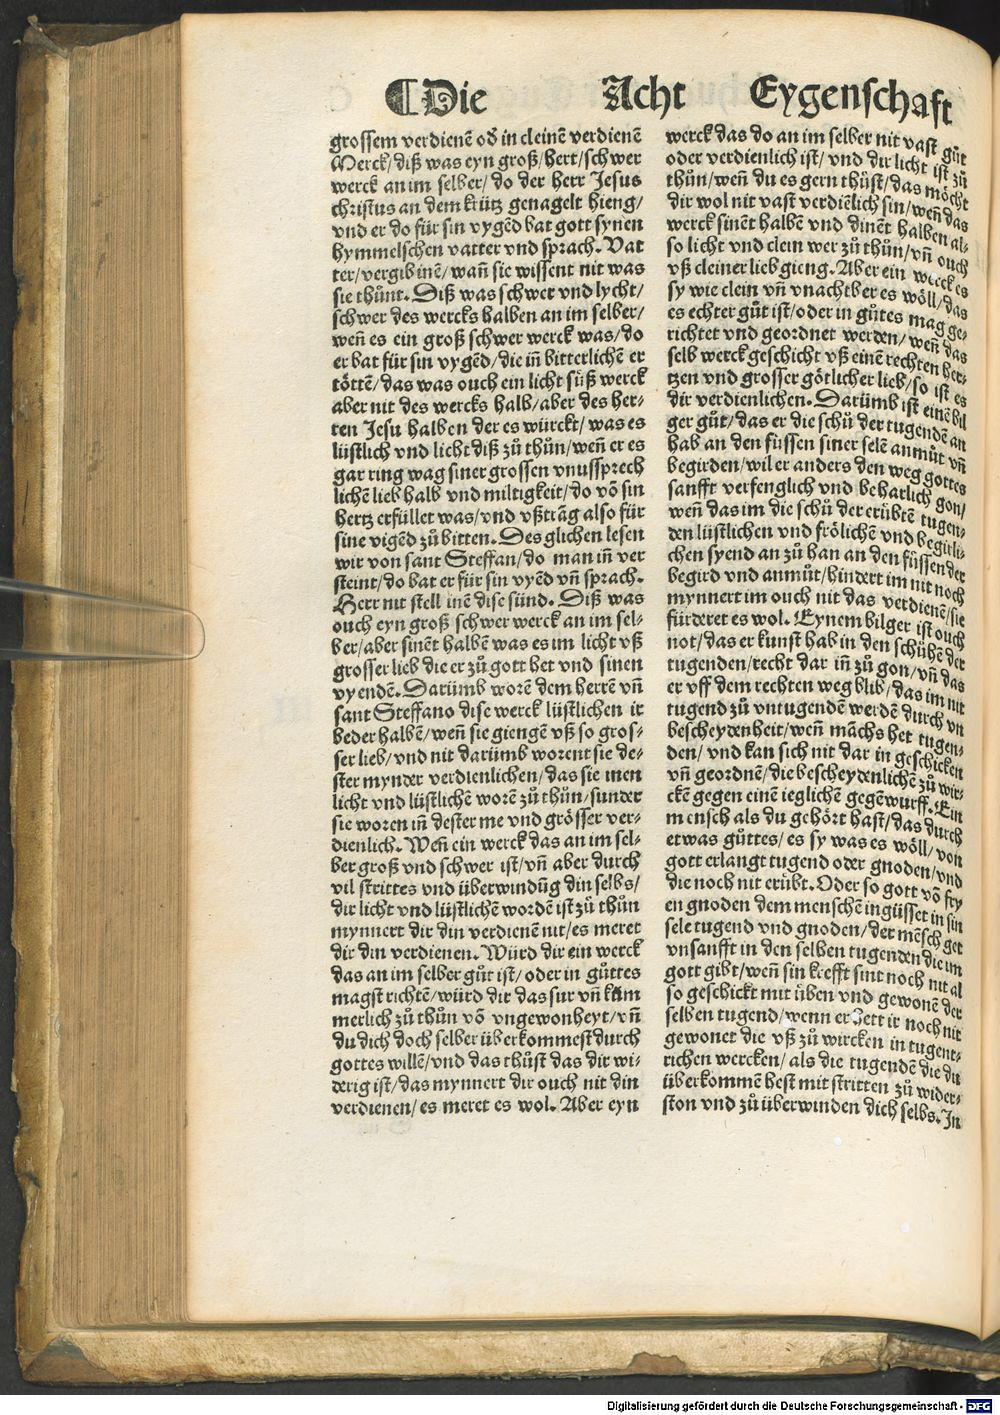 ¶Die Acht Eygenschaft
grossem verdienē od̄ in cleinē verdienē
Merck/diß was eyn groß/hert/schwer
werck an im selber/do der herr Jesus
christus an dem krütz genagelt hieng/
vnd er do für sin vygēd bat gott synen
hymmelschen vatter vnd sprach. Vat
ter/vergib inē/wañ sie wissent nit was
sie thůnt. Diß was schwer vnd lycht/
schwer des wercks halben an im selber/
weñ es ein groß schwer werck was/do
er bat für sin vygēd/die iñ bitterlichē er
töttē/das was ouch ein licht süß werck
aber nit des wercks halb/aber des her-
ren Jesu halben der es würckt/was es
lüstlich vnd licht diß zů thůn/weñ er es
gar ring wag siner grossen vnussprech
lichē lieb halb vnd miltigkeit/do vō sin
hertz erfüllet was/vnd vßtrāg also für
sine vigēd zů bitten. Des glichen lesen
wir von sant Steffan/do man iñ ver
steint/do bat er für sin vyēd vñ sprach.
Herr nit stell inē dise sünd. Diß was
ouch eyn groß schwer werck an im sel-
ber/aber sinēt halbē was es im licht vß
grosser lieb die er zů gott het vnd sinen
vyendē. Darümb worē dem herrē vñ
sant Steffano dise werck lüstlichen ir
beder halbē/weñ sie giengē vß so gros-
ser lieb/vnd nit darümb worent sie de-
ster mynder verdienlichen/das sie inen
licht vnd lüstlichē worē zů thůn/sunder
sie woren iñ dester me vnd grösser ver-
dienlich. Weñ ein werck das an im sel-
ber groß vnd schwer ist/vñ aber durch
vil strittes vnd überwindūg din selbs/
dir licht vnd lüstlichē wordē ist zů thůn
mynnert dir din verdienē nit/es meret
dir din verdienen. Würd dir ein werck
das an im selber gůt ist/oder in gůttes
magst richtē/würd dir das sur vñ küm
merlich zů thůn vō vngewonheyt/vñ
du dich doch selber überkommest durch
gottes willē/vnd das thůst das dir wi-
derig ist/das mynnert dir ouch nit din
verdienen/es meret es wol. Aber eyn
werck das do an im selber nit vast gůt
oder verdienlich ist/vnd dir licht ist zů
thůn/weñ du es gern thůst/das möcht
dir wol nit vast verdiēlich sin/weñ das
werck sinēt halbē vnd dinēt halben al-
so licht vnd clein wer zů thůn/vñ ouch
vß cleiner lieb gieng. Aber ein werck es
sy wie clein vñ vnachtber es wöll/das
es echter gůt ist/oder in gůtes mag ge-
richtet vnd geordnet werden/weñ das
selb werck geschicht vß einē rechten her-
tzen vnd grosser götlicher lieb/so ist es
dir verdienlichen. Darümb ist einē bil
ger gůt/das er die schů der tugendē an
hab an den füssen siner selē anmůt vñ
begirden/wil er anders den weg gottes
sanfft verfenglich vnd beharlich gon/
weñ das im die schů der erübtē tugen-
den lüstlichen vnd frölichen vnd begirli-
chen syend an zů han an den füssen der
begird vnd anmůt/hindert im nit noch
mynnert im ouch nit das verdienē/sie
fürderet es wol. Eynem bilger ist ouch
not/das er kunst hab in den schühē der
tugenden/recht dar iñ zů gon/vñ das
er vff dem rechten weg blib/das im nit
tugend zů vntugendē werdē durch vn
bescheydenheit/weñ māchs het tugen-
den/vnd kan sich nit dar in geschicken
vñ geordnē/die bescheydenlichē zů wir-
ckē gegen einē ieglichen gegēwurff. Ein
mensch als du gehört hast/das durch
etwas gůttes/es sy was es wöll/von
gott erlangt tugend oder gnoden/vnd
die noch nit erübt. Oder so gott vō fry
en gnoden dem menschē ingüsset in sin
sele tugend vnd gnoden/der mēsch get
vnsanfft in den selben tugenden die im
gott gibt/weñ sin krefft sint noch nit al
so geschickt mit üben vnd gewonē der
selben tugend/wenn er Jett ir noch nit
gewonet die vß zů wircken in tugent-
richen wercken/als die tugendē die du
überkommē hest mit stritten zů wider-
ston vnd zů überwinden dich selbs. In
Digitalisierung gefördert durch die Deutsche Forschungsgemeinschaft - DFG